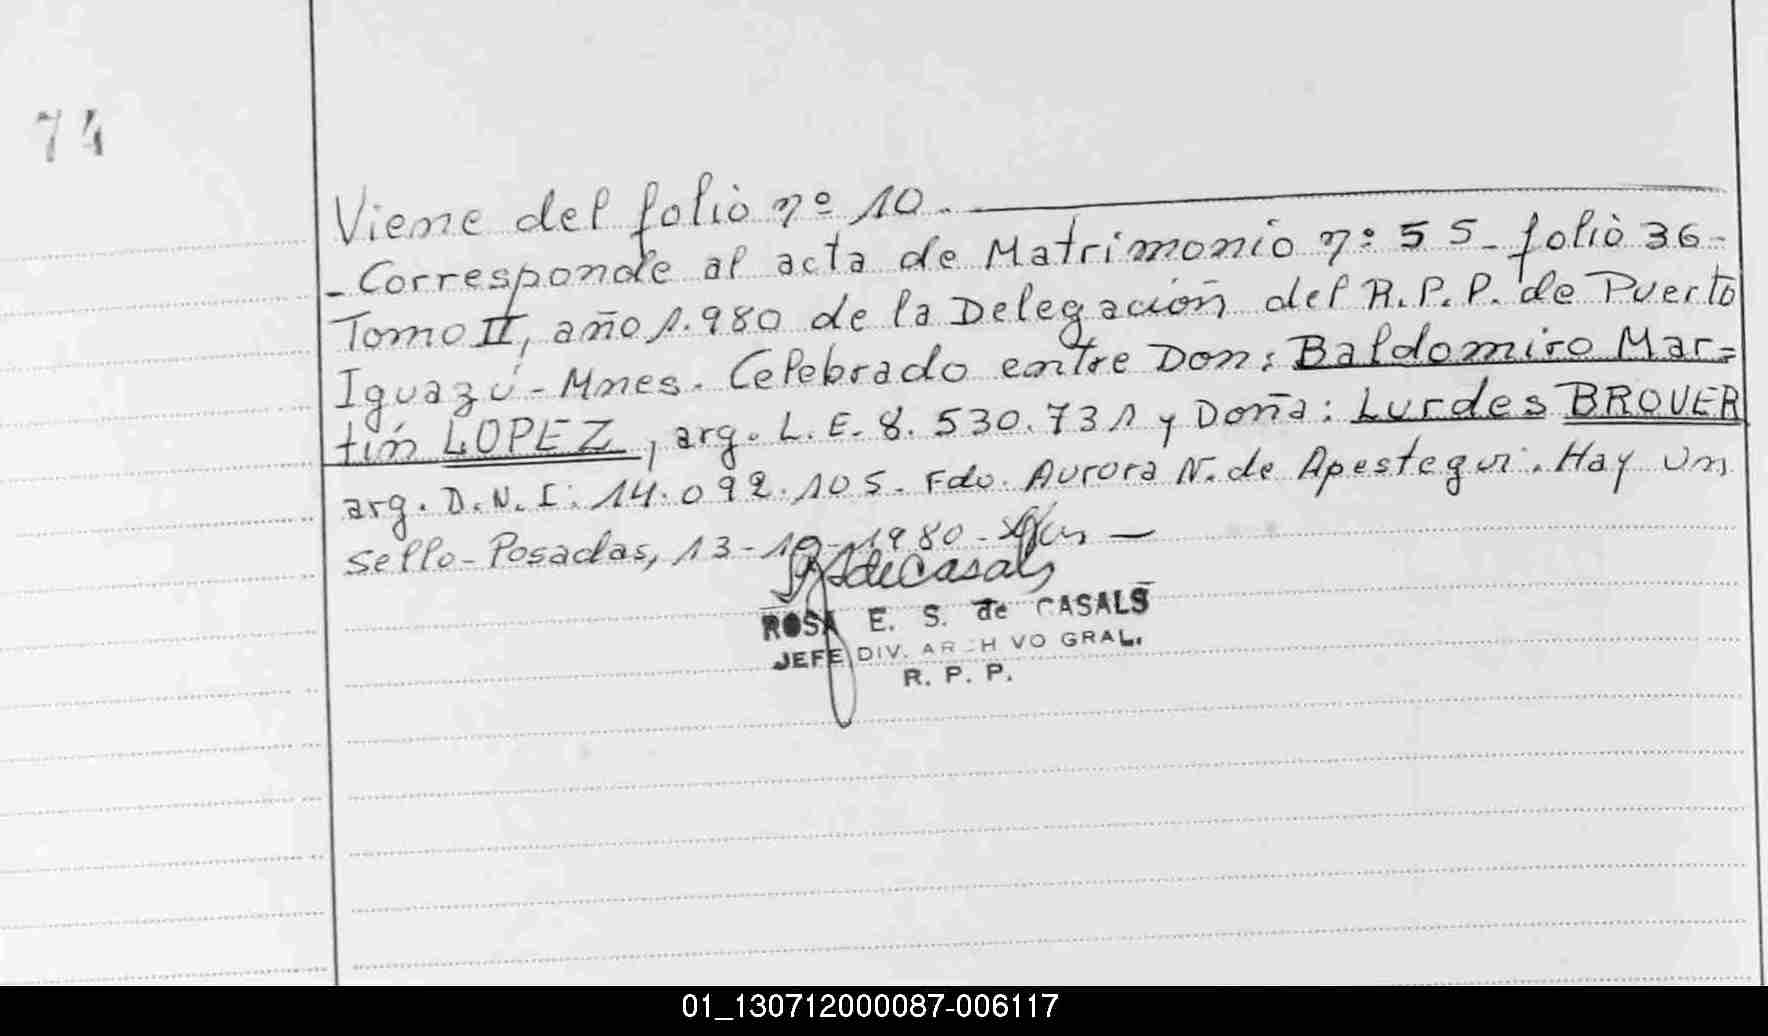 74
Viene del folio nº 10.
- Corresponde al acta de Matrimonio nº 55 - folio 36 -
Tomo II, año 1.980 de la Delegación del R.P.P. de Puerto
Iguazú - Mnes. Celebrado entre Don: Baldomiro Mar=
tín LOPEZ, arg. L.E. 8.530.731 y Doña: Lurdes BROUER
arg. D.N.I: 14.092.105. Fdo. Aurora N. de Apestegui. Hay un
sello - Posadas, 13-10-1980 -
de Casals
ROSA E. S. de CASALS
JEFE DIV. ARCHIVO GRAL.
R. P. P.
01_130712000087-006117